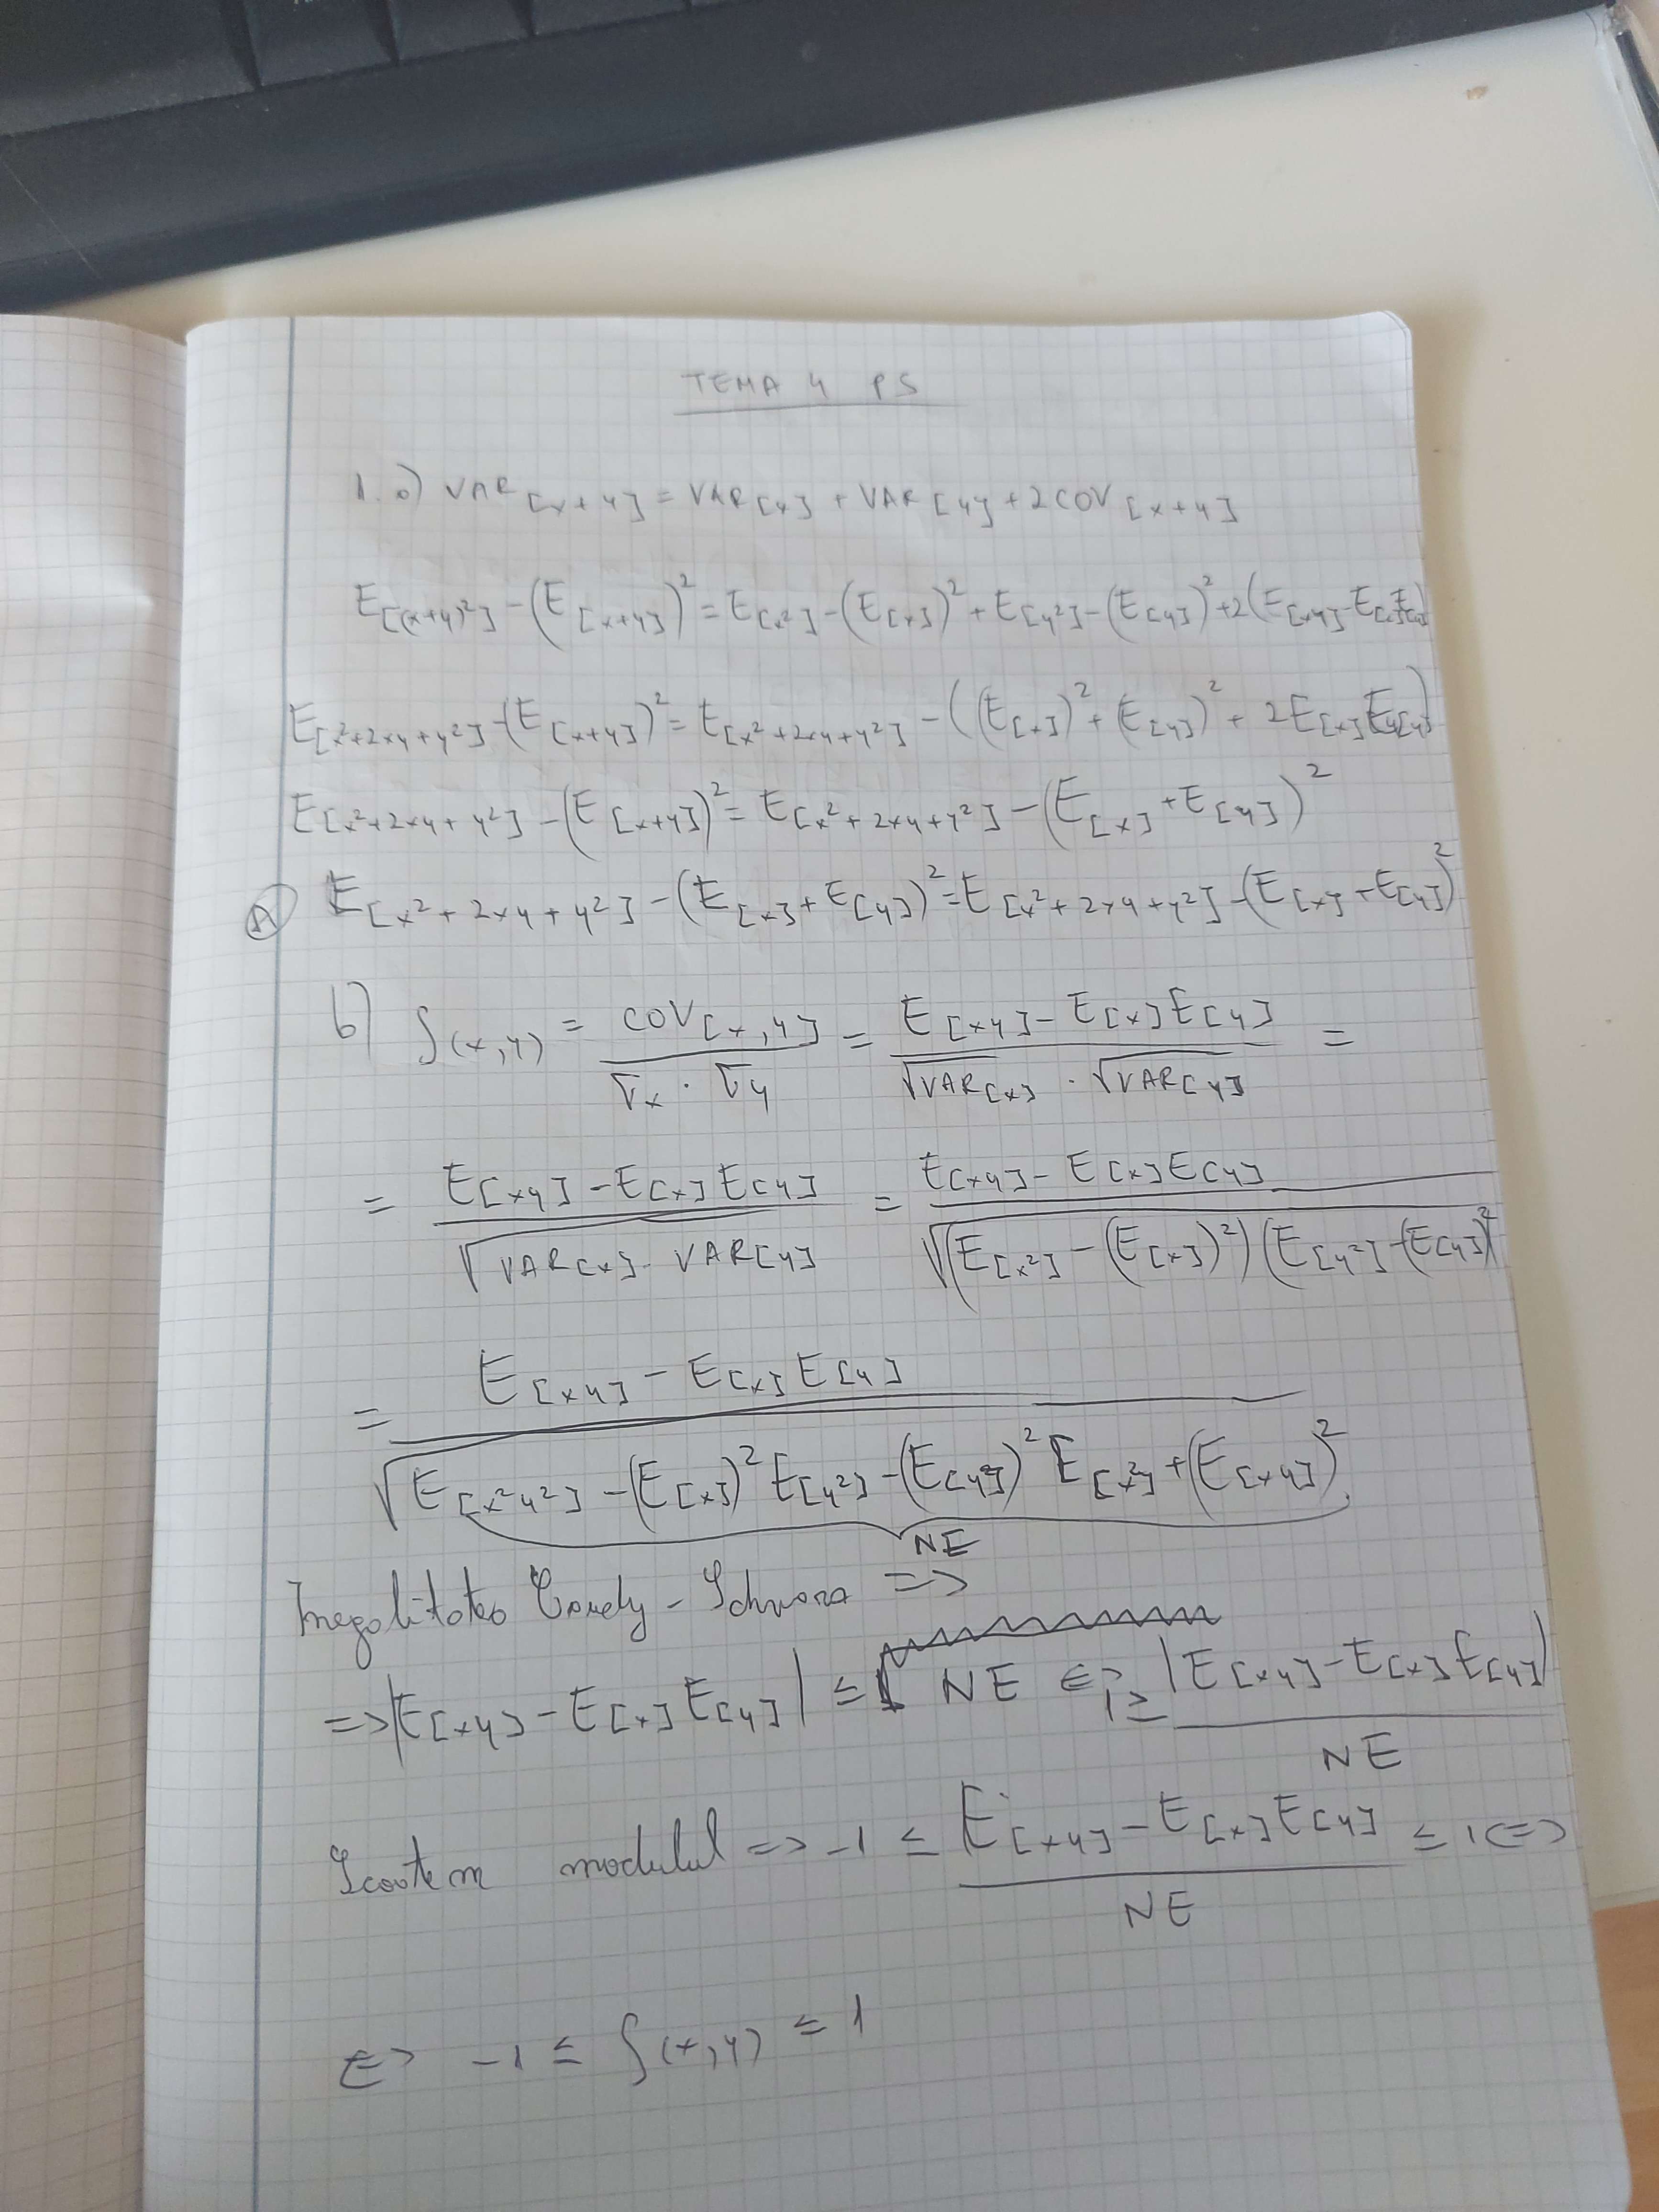 TEMA 4 PS
1. a) VAR[x+y] = VAR[x] + VAR[y] + 2COV[x+y]
E[(x+y)²] - (E[x+y])² = E[x²] - (E[x])² + E[y²] - (E[y])² + 2(E[xy] - E[x]E[y])
E[x²+2xy+y²] - (E[x+y])² = E[x²+2xy+y²] - ((E[x])² + (E[y])² + 2E[x]E[y])
E[x²+2xy+y²] - (E[x+y])² = E[x²+2xy+y²] - (E[x] + E[y])²
(A) E[x²+2xy+y²] - (E[x] + E[y])² = E[x²+2xy+y²] - (E[x] + E[y])²
b) ρ(x,y) = COV[x,y] / (σx · σy) = (E[xy] - E[x]E[y]) / (√VAR[x] · √VAR[y]) =
= (E[xy] - E[x]E[y]) / √(VAR[x] · VAR[y]) = (E[xy] - E[x]E[y]) / √((E[x²] - (E[x])²)(E[y²] - (E[y])²)
= (E[xy] - E[x]E[y]) / √(E[x²y²] - (E[x])² E[y²] - (E[y])² E[x²] + (E[xy])²)
NE
Inegalitatea Cauchy - Schwarz =>
=> |E[xy] - E[x]E[y]| ≤ NE <=> 1 ≥ |E[xy] - E[x]E[y]| / NE
Scoatem modulul => -1 ≤ (E[xy] - E[x]E[y]) / NE ≤ 1 <=>
<=> -1 ≤ ρ(x,y) ≤ 1